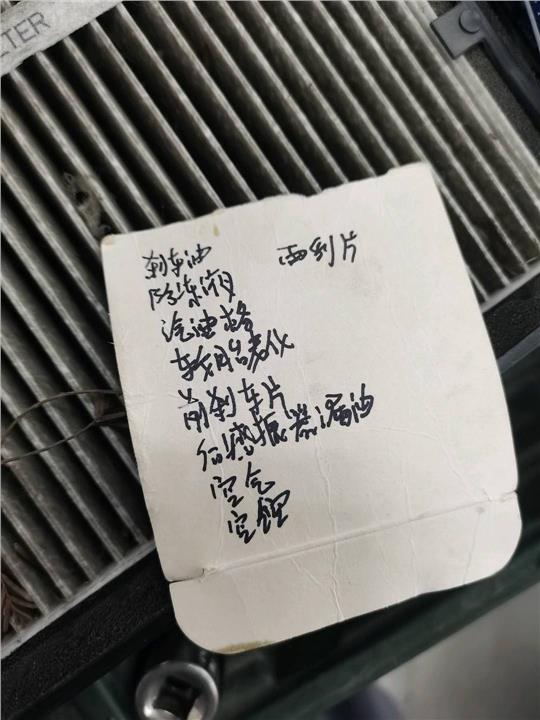 LTER
刹车油
雨刮片
防冻液
汽油格
轮胎老化
前刹车片
后减振器漏油
空气
空调